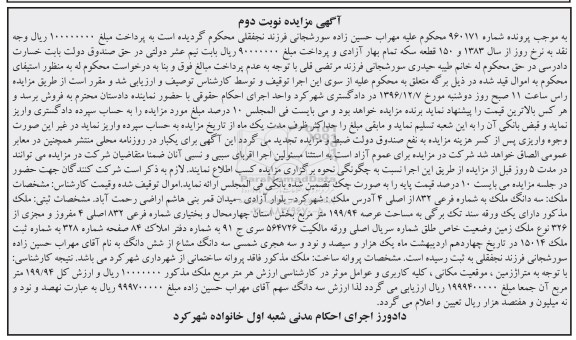 آگهی مزایده نوبت دوم
به موجب پرونده شماره ۹۶۰۱۷۱ محکوم علیه مهراب حسین زاده سورشجانی فرزند نجفقلی محکوم گردیده است به پرداخت مبلغ ۱۰۰۰۰۰۰۰۰ ریال وجه
نقد به نرخ روز از سال ۱۳۸۳ و ۱۵۰ قطعه سکه تمام بهار آزادی و پرداخت مبلغ ۹۰۰۰۰۰۰۰ ریال بابت نیم عشر دولتی در حق صندوق دولت بابت خسارت
دادرسی در حق محکوم له خانم طیبه حیدری سورشجانی فرزند مرتضی قلی با توجه به عدم پرداخت مبالغ فوق و بنا به درخواست محکوم له به منظور استیفای
محکوم به اموال قید شده در ذیل برگه متعلق به محکوم علیه از سوی این اجرا توقیف و توسط کارشناس توصیف و ارزیابی شد و مقرر است از طریق مزایده
راس ساعت ۱۱ صبح روز دوشنبه مورخ ۱۳۹۶/۱۲/۷ در دادگستری شهرکرد واحد اجرای احکام حقوقی با حضور نماینده دادستان محترم به فروش برسد و
هر کس بالاترین قیمت را پیشنهاد نماید برنده مزایده خواهد بود و می بایست فی المجلس ۱۰ درصد مبلغ مورد مزایده را به حساب سپرده دادگستری واریز
نماید و قبض بانکی آن را به این شعبه تسلیم نماید و مابقی مبلغ را حداکثر ظرف مدت یک ماه از تاریخ مزایده به حساب سپرده واریز نماید در غیر این صورت
وجوه واریزی پس از کسر هزینه مزایده به نفع صندوق دولت ضبط و مزایده تجدید می گردد این آگهی برای یکبار در روزنامه محلی منتشر همچنین در معابر
عمومی الصاق خواهد شد شرکت در مزایده برای عموم آزاد است به استثنا مسئولین اجرا اقربای سببی و نسبی آنان ضمنا متقاضیان شرکت در مزایده می توانند
در مدت ۵ روز قبل از مزایده از طریق این اجرا نسبت به چگونگی نحوه برگزاری مزایده کسب اطلاع نمایند. لازم به ذکر است شرکت کنندگان جهت حضور
در جلسه مزایده می بایست ۱۰ درصد قیمت پایه را به صورت چک تضمین شده بانکی فی المجلس ارائه نماید.اموال توقیف شده وقیمت کارشناس: مشخصات
ملک: سه دانگ ملک به شماره فرعی ۸۳۲از اصلی ۴ آدرس ملک : شهرکرد- بلوار آزادی -میدان قمر بنی هاشم اراضی رحمت آباد. مشخصات ثبتی: ملک
مذکور دارای یک ورقه سند تک برگی به مساحت عرصه ۱۹۹/۹۴ متر مربع بخش استان چهارمحال و بختیاری شماره فرعی ۸۳۲اصلی ۴ مفروز و مجزی از
۳۲۶ نوع ملک زمین وضعیت خاص طلق شماره سریال اصلی ورقه مالکیت ۵۶۴۷۲۶ سری ج ۹۱ به شماره دفتر املاک ۸۴ صفحه شماره ۳۲۸ به شماره ثبت
ملک ۱۵۰۱۴ در تاریخ چهاردهم اردیبهشت ماه یک هزار و سیصد و نود و سه هجری شمسی سه دانگ مشاع از شش دانگ به نام آقای مهراب حسین زاده
سورشجانی فرزند نجفقلی به ثبت رسیده است. مشخصات پروانه ساخت: ملک مذکور فاقد پروانه ساختمانی از شهرداری شهرکرد می باشد. نتیجه کارشناسی:
با توجه به متراژزمین ، موقعیت مکانی ، کلیه کاربری و عوامل موثر در کارشناسی ارزش هر متر مربع ملک مذکور ۱۰۰۰۰۰۰۰ ریال و ارزش کل ۱۹۹/۹۴ متر
مربع آن جمعا مبلغ ۱۹۹۹۴۰۰۰۰۰ ریال ارزیابی می گردد لذا ارزش سه دانگ سهم آقای مهراب حسین زاده مبلغ ۹۹۹۷۰۰۰۰۰ ریال به عبارت نهصد و نود و
نه میلیون و هفتصد هزار ریال تعیین و اعلام می گردد.
دادورز اجرای احکام مدنی شعبه اول خانواده شهرکرد